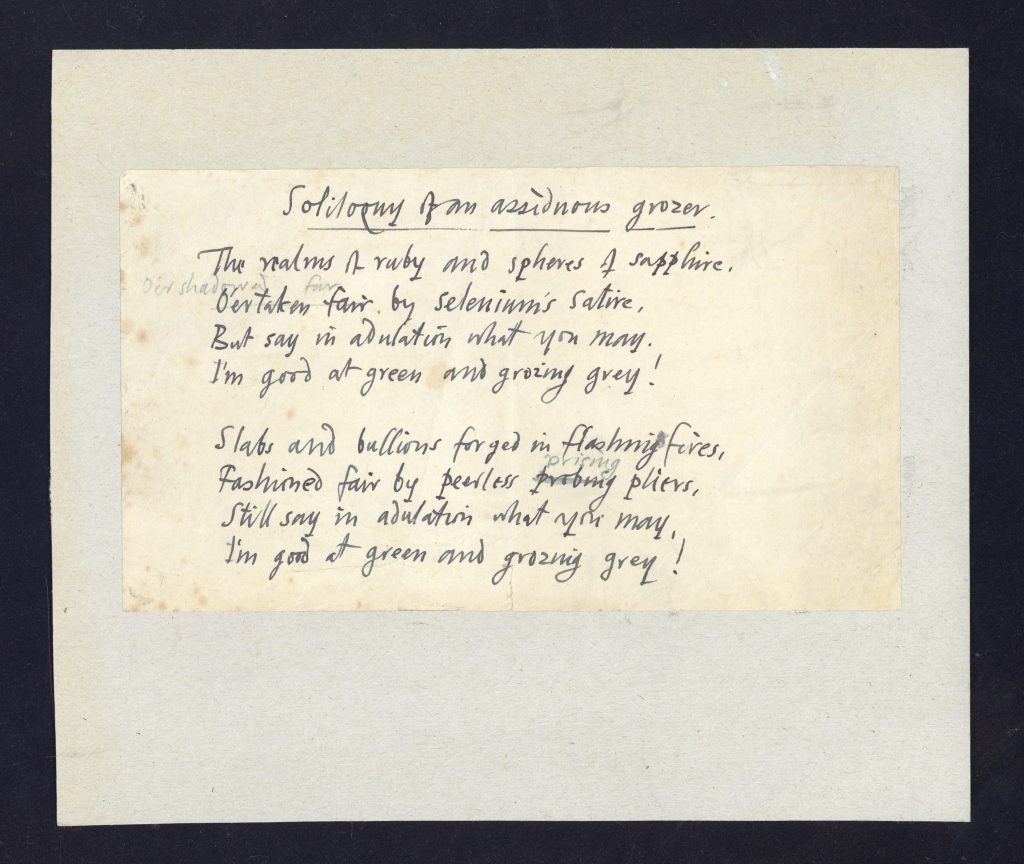 Soliloquy of an assiduous grozer.
The realms of ruby and spheres of sapphire.
O'er shadowed fair
O'ertaken fair by selenium's satire,
But say in adulation what you may.
I'm good at green and grozing grey!
Slabs and bullions forged in flashing fires,
prising
Fashioned fair by peerless probing pliers,
Still say in adulation what you may,
I'm good at green and grozing grey!